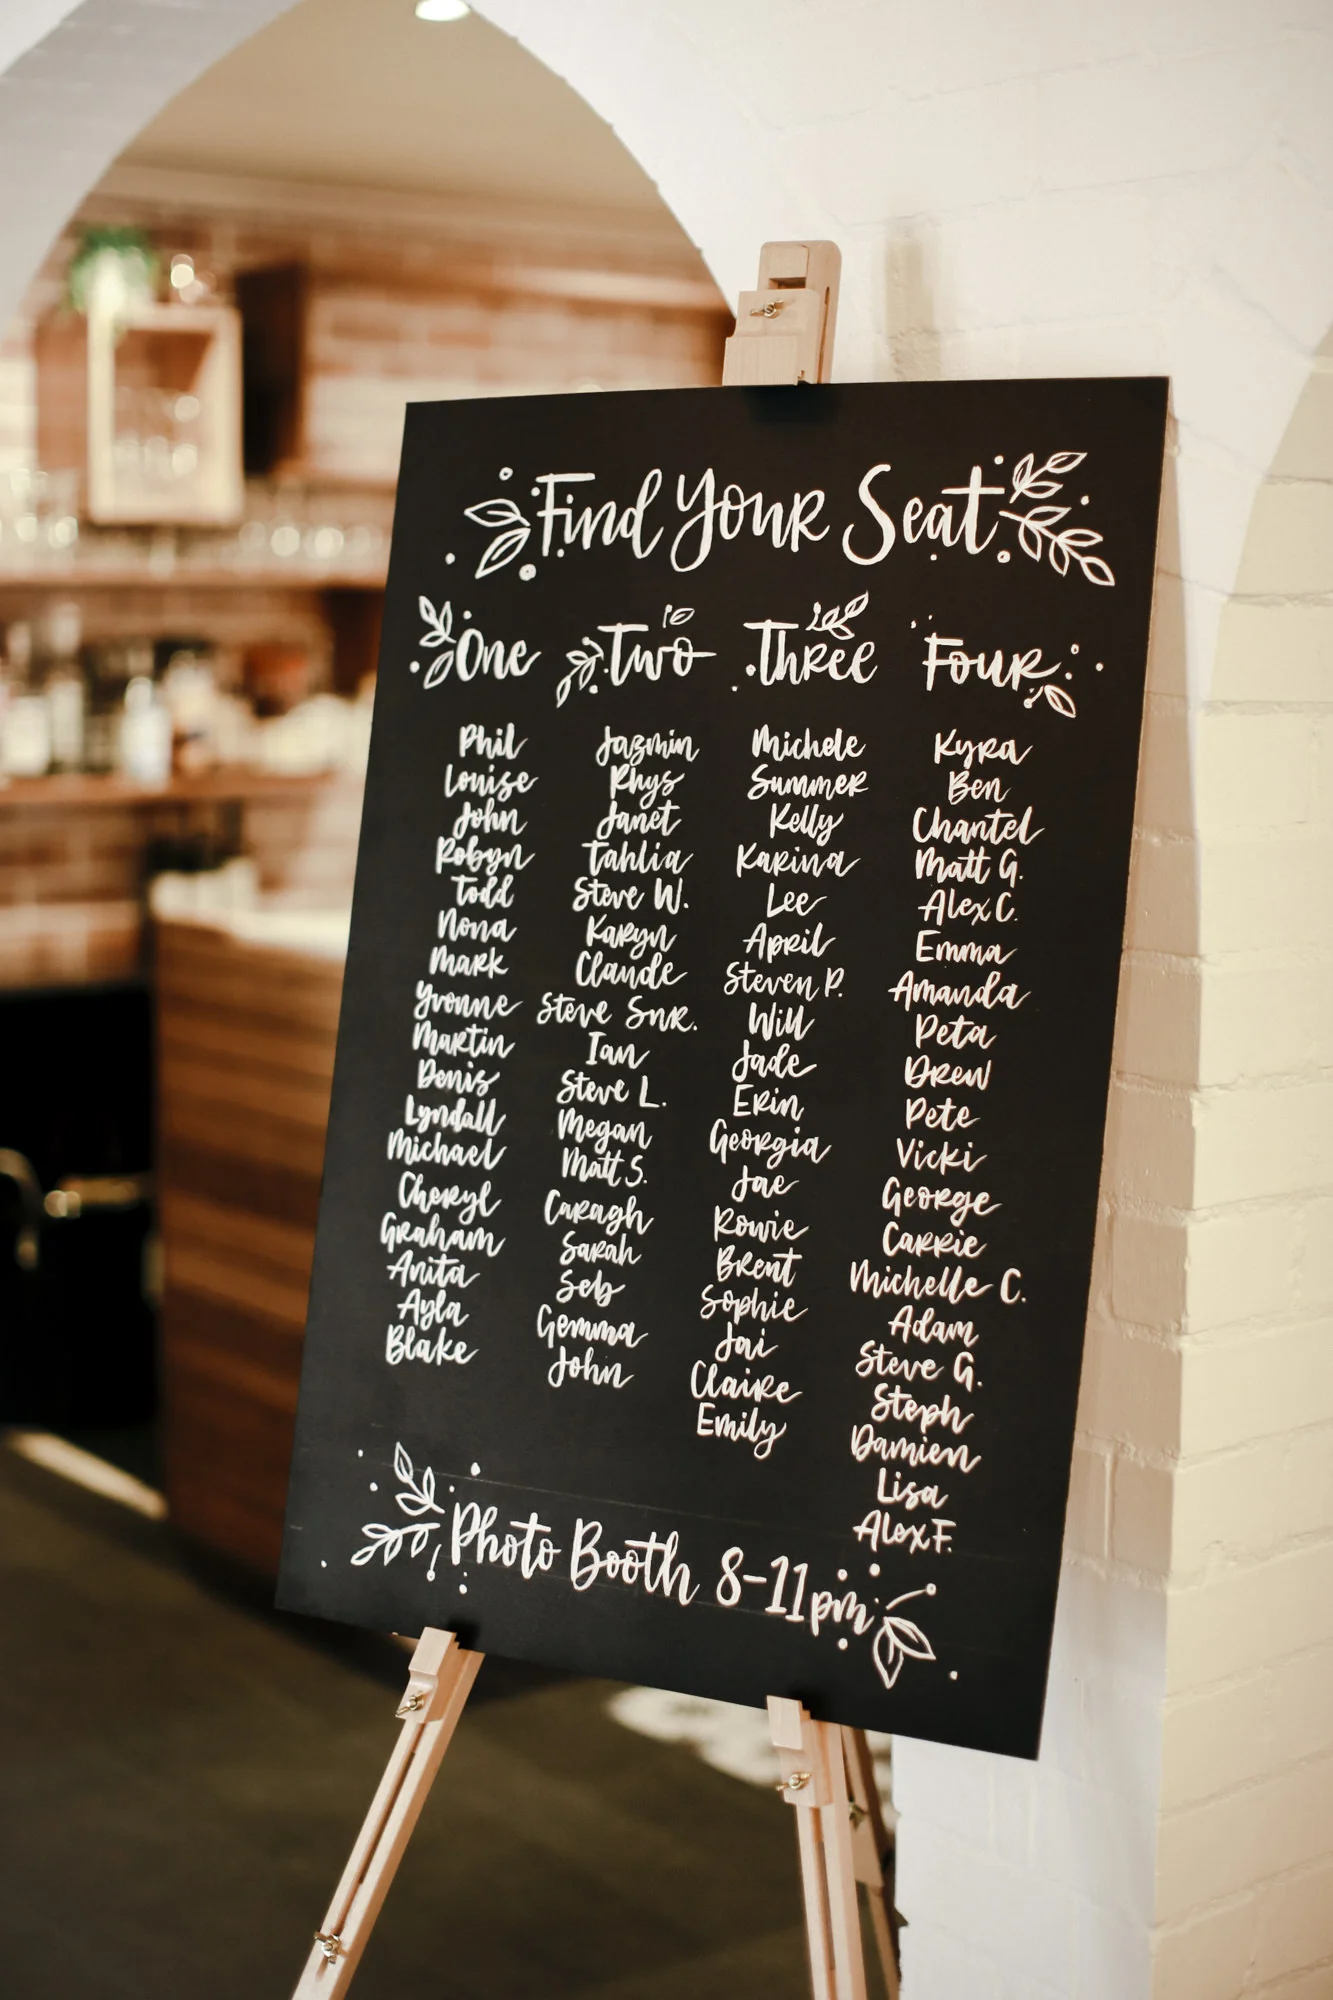 Find Your Seat
One
Phil
Louise
John
Robyn
Todd
Nona
Mark
Yvonne
Martin
Denis
Lyndall
Michael
Cheryl
Graham
Anita
Ayla
Blake
Two
Jazmin
Rhys
Janet
Tahlia
Steve W.
Karyn
Claude
Steve Snr.
Ian
Steve L.
Megan
Matt S.
Caragh
Sarah
Seb
Gemma
John
Three
Michele
Summer
Kelly
Karina
Lee
April
Steven P.
Will
Jade
Erin
Georgia
Jae
Rowie
Brent
Sophie
Jai
Claire
Emily
Four
Kyra
Ben
Chantel
Matt G.
Alex C.
Emma
Amanda
Peta
Drew
Pete
Vicki
George
Carrie
Michelle C.
Adam
Steve G.
Steph
Damien
Lisa
Alex F.
Photo Booth 8-11pm